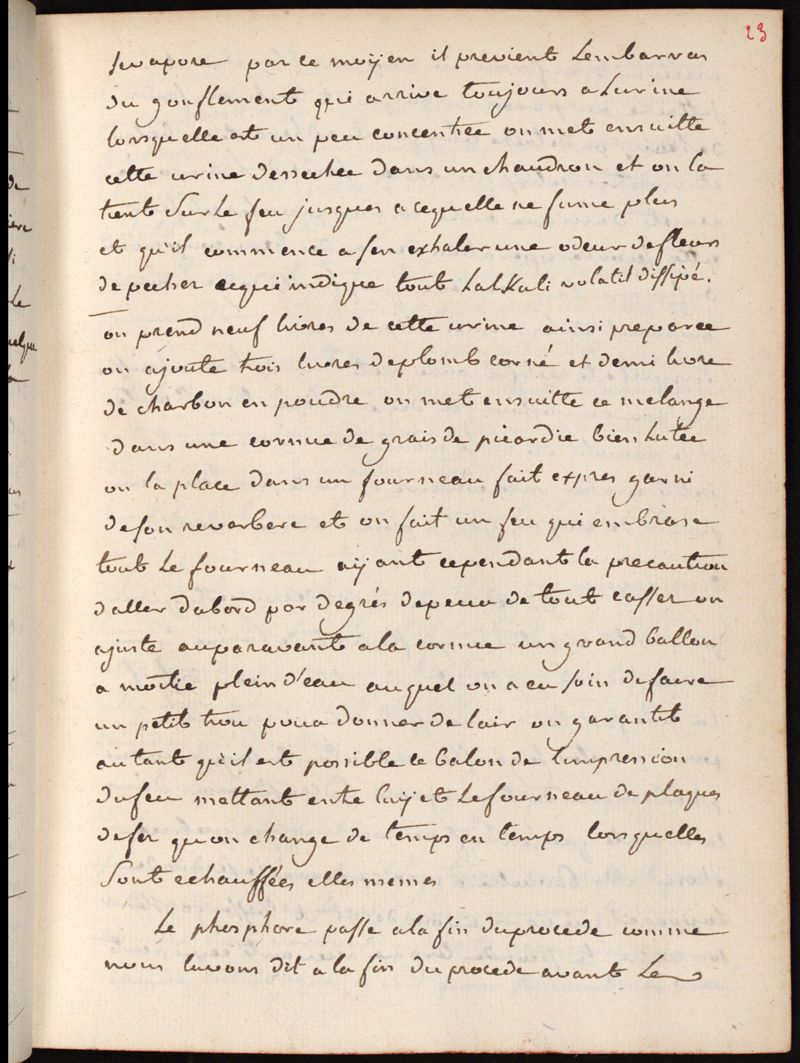 23
sevapore par ce moÿen il previent Lembarras
du gonflement qui arrive toujours a Lurine
lorsquelle est un peu concentrée on met ensuitte
cette urine dessechée dans un chaudron et on la
tient Sur Le feu jusques a cequelle ne fume plus
et qu'il commence a sen exhaler une odeur defleurs
de pecher cequi indique tout LalKali volatil dissipé.
on prend neuf livres de cette urine ainsi preparée
on ajoute trois livres deplomb corné et demi livre
de charbon en poudre on met ensuitte ce melange
dans une cornue de grais de picardie bien Lutée
on la place dans un fourneau fait expres garni
deson reverbere et on fait un feu qui embrase
tout Le fourneau aÿant cependant la precaution
daller dabord par degrés depeur de tout casser on
ajuste auparavant a la cornue un grand ballon
a moitié plein d'eau auquel on a eu soin defaire
un petit trou pour donner de lair on garantit
autant qu'il est possible ce balon de Limpression
dufeu mettant entre luÿ et Lefourneau de plaques
defer quon change de temps en temps lorsquelles
Sont echauffées elles memes
Le phosphore passe a la fin duprocede comme
nous lavons dit a la fin du procede avant Le